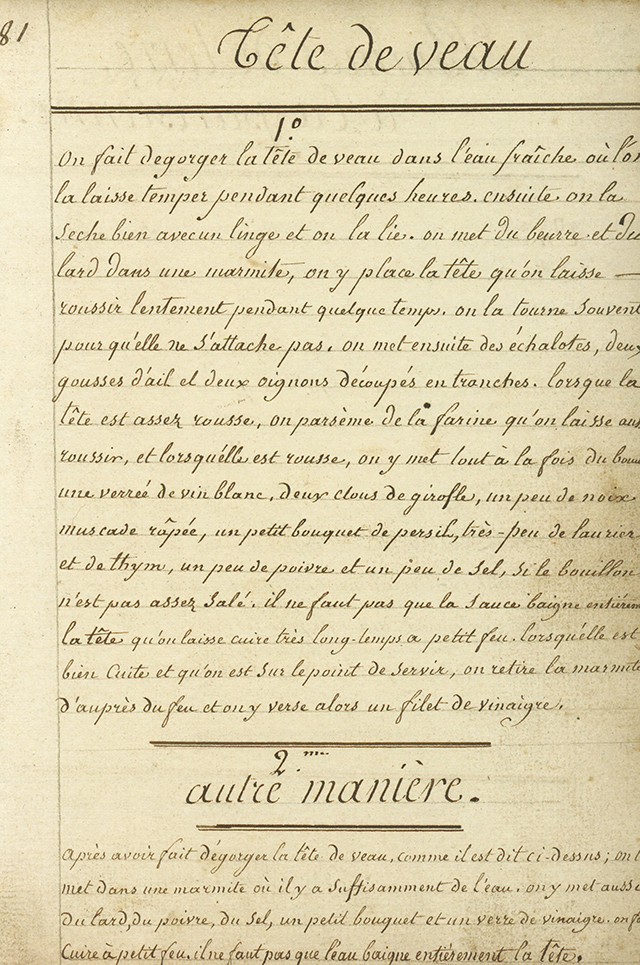 81
Tête de veau
1.º
On fait degorger la tête de veau dans l'eau fraîche où l'on
la laisse temper pendant quelques heures. ensuite on la
seche bien avec un linge et on la lie. on met du beurre et du
lard dans une marmite, on y place la tête qu'on laisse —
roussir lentement pendant quelque temps. on la tourne souvent
pour qu'elle ne s'attache pas. on met ensuite des échalotes, deux
gousses d'ail et deux oignons découpés en tranches. lorsque la
tête est assez rousse, on parsème de la farine qu'on laisse aus
roussir, et lorsqu'elle est rousse, on y met tout à la fois du boui
une verreé de vin blanc, deux clous de girofle, un peu de noix
muscade râpée, un petit bouquet de persil, très-peu de laurier
et de thym, un peu de poivre et un peu de sel, si le bouillon
n'est pas assez salé. il ne faut pas que la sauce baigne entièrem
la tête qu'on laisse cuire très long-temps a petit feu. lorsqu'elle est
bien cuite et qu'on est sur le point de servir, on retire la marmite
d'auprès du feu et on y verse alors un filet de vinaigre.
2.me
autre manière.
Après avoir fait dégorger la tête de veau, comme il est dit ci-dessus; on l
met dans une marmite où il y a suffisamment de l'eau. on y met aussi
du lard, du poivre, du sel, un petit bouquet et un verre de vinaigre. on f
cuire à petit feu. il ne faut pas que l'eau baigne entièrement la tête.